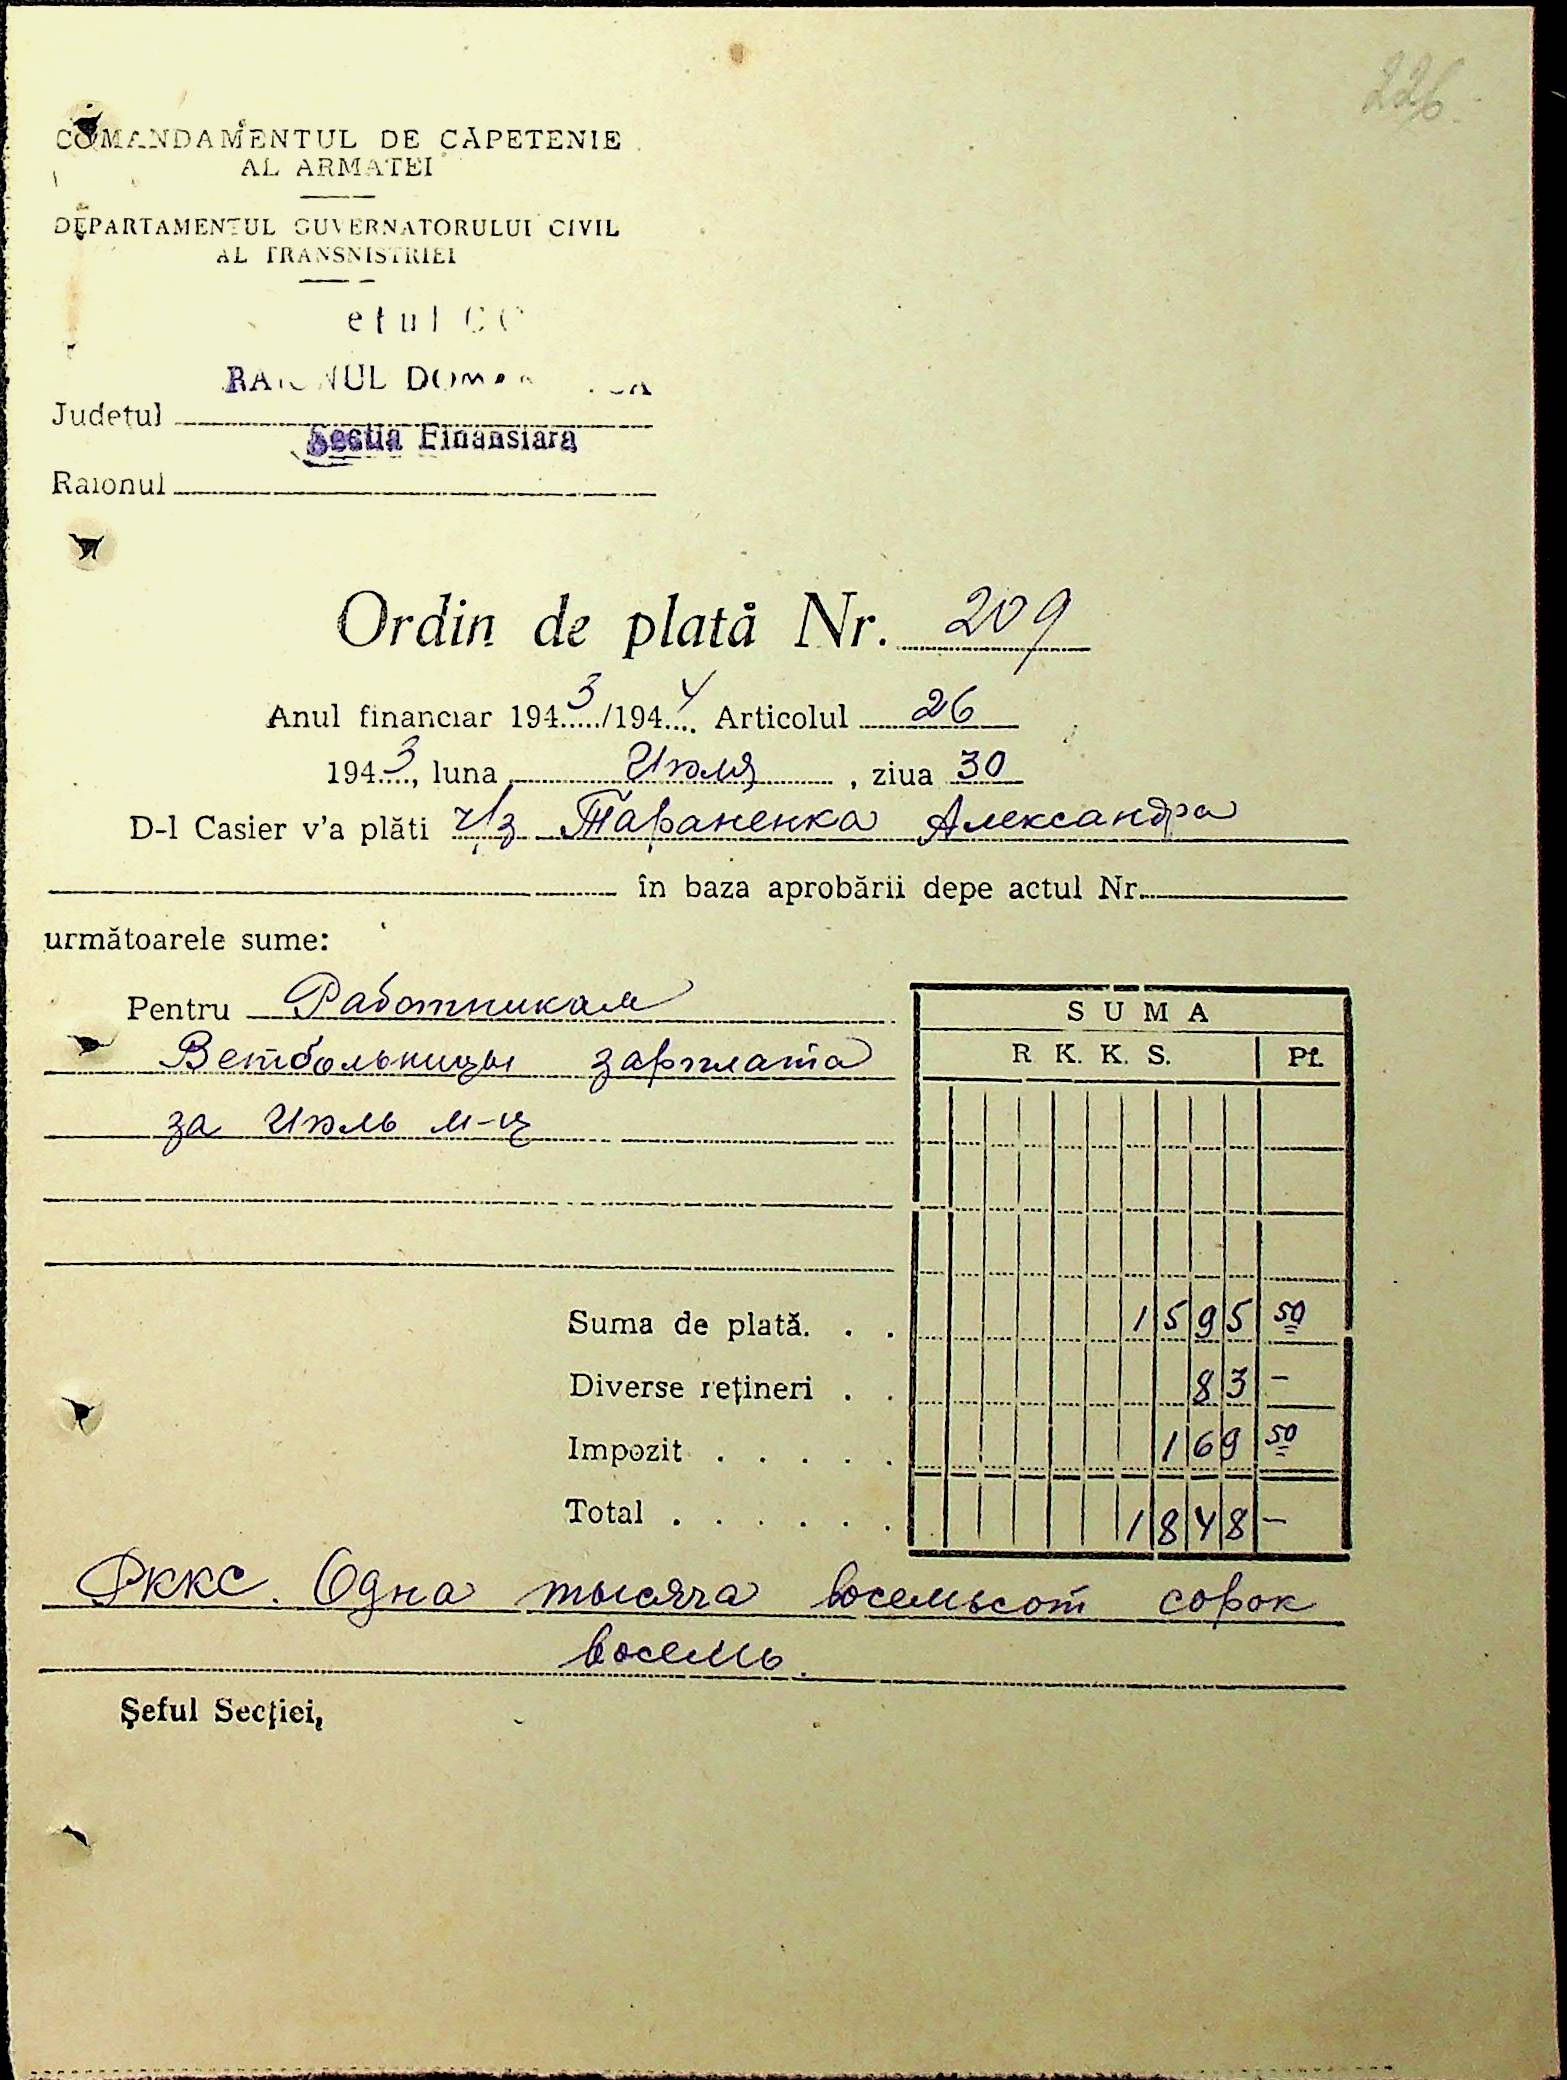 226
COMANDAMENTUL DE CĂPETENIE
AL ARMATEI
DEPARTAMENTUL GUVERNATORULUI CIVIL
AL TRANSNISTRIEI
RAIONUL
Județul
Sectia Finansiara
Raionul
Ordin de plată Nr. 209
Anul financiar 1943/1944 Articolul 26
1943, luna Июля, ziua 30
D-l Casier v'a plăti ч/з Тараненка Александра
în baza aprobării depe actul Nr.
următoarele sume:
Pentru Работникам
Ветбольницы зарплата
за Июль м-ц
SUMA
R K. K. S. Pf.
Suma de plată. . . 1595 50
Diverse rețineri . . 83 –
Impozit . . . . . 169 50
Total . . . . . . 1848 –
РККС. Одна тысяча восемьсот сорок
восемь.
Șeful Secției,